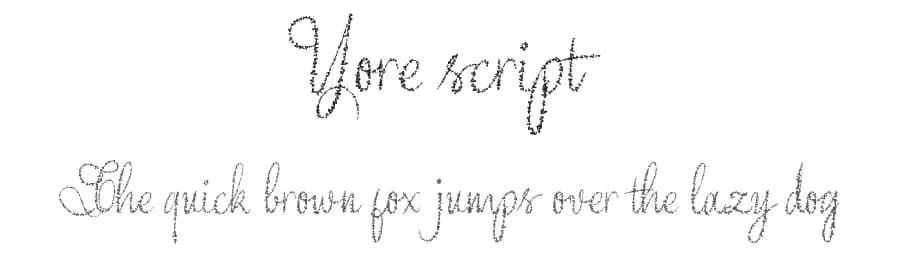 Yore script
The quick brown fox jumps over the lazy dog